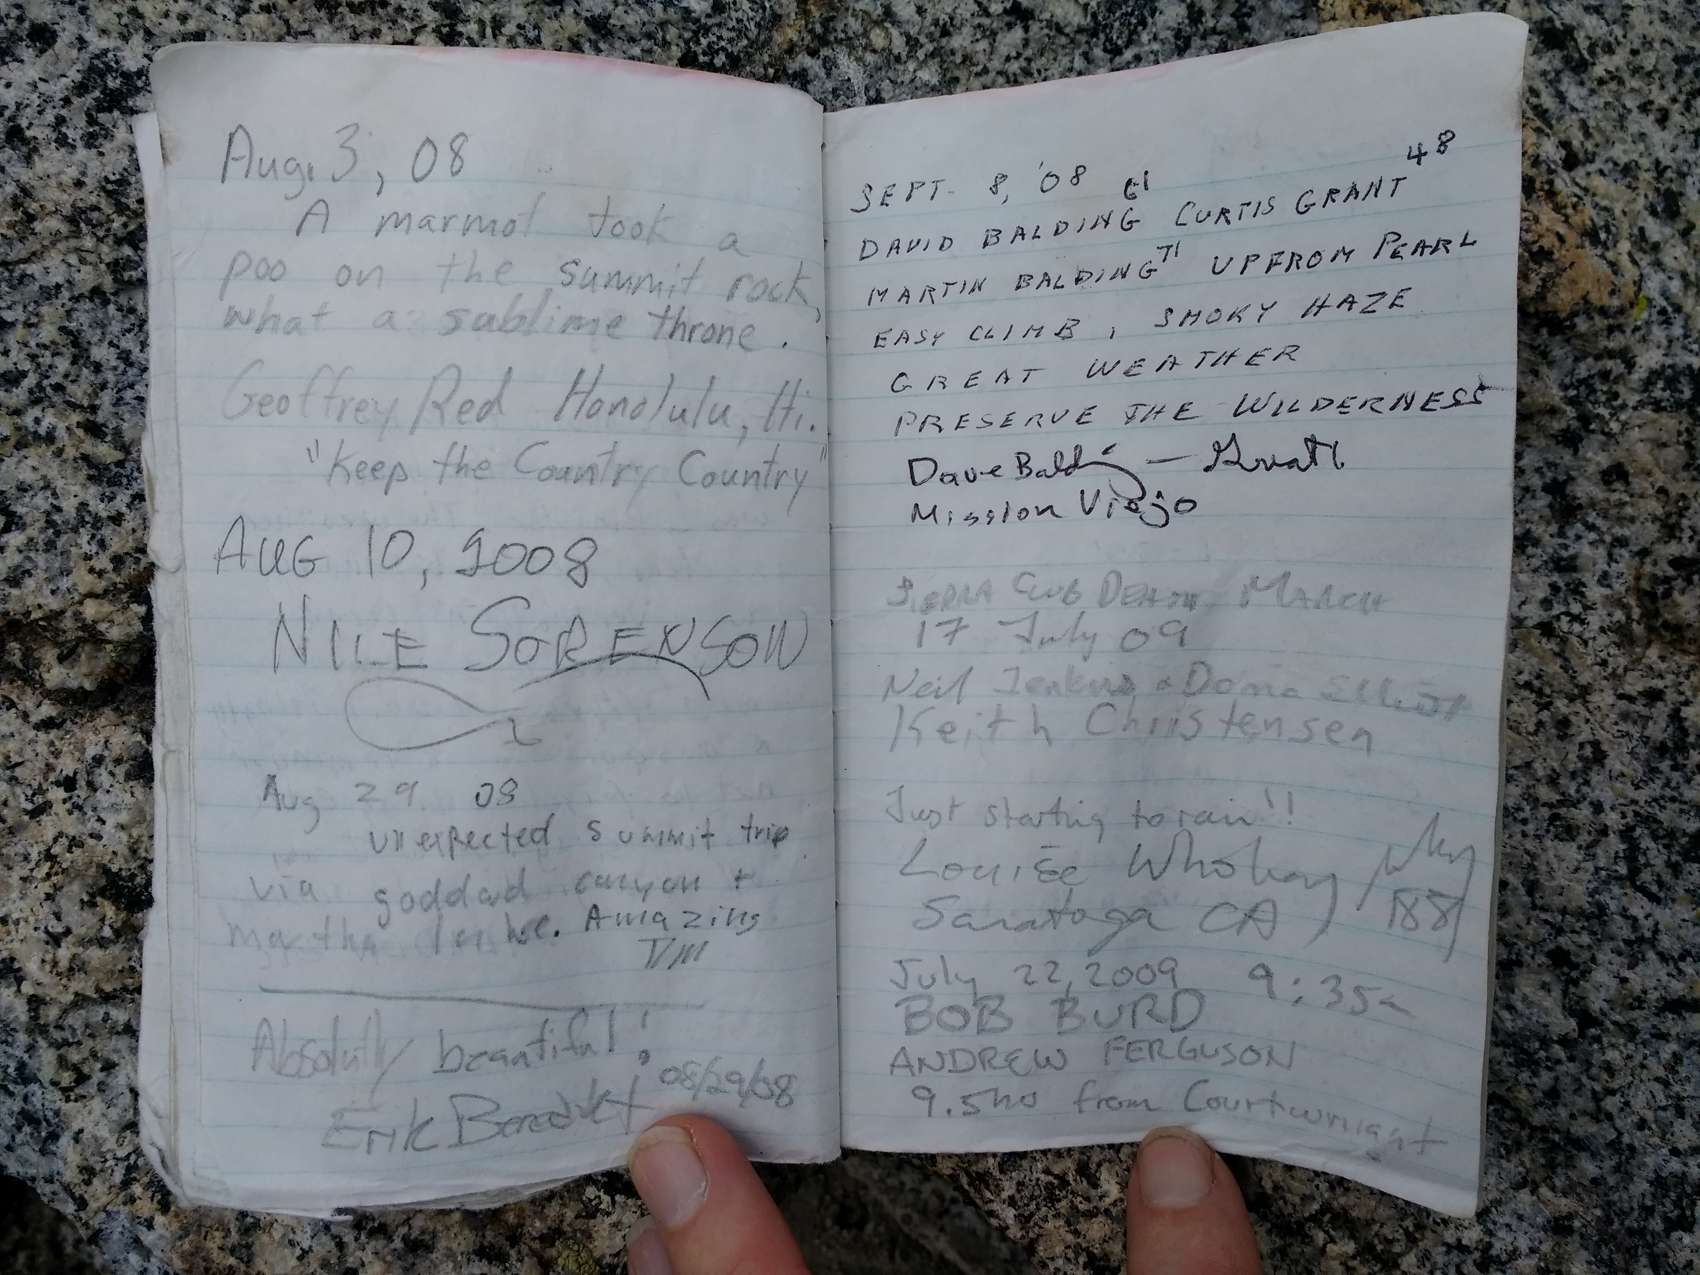 Aug. 3, 08
A marmot took a
poo on the summit rock,
what a sublime throne.
Geoffrey Red Honolulu, Hi.
"Keep the Country Country"
AUG 10, 2008
NILE SORENSON
Aug 29 08
unexpected summit trip
via goddard canyon +
martha lake. Amazing
TM
Absolutly beautiful!
Erik Benedikt 08/29/08
SEPT. 8, '08
DAVID BALDING 61 CURTIS GRANT 48
MARTIN BALDING 71 UP FROM PEARL
EASY CLIMB, SMOKY HAZE
GREAT WEATHER
PRESERVE THE WILDERNESS
Dave Balding —
Mission Viejo
SIERRA CLUB DEATH MARCH
17 July 09
Neil Jenkins & Donna Elliott
Keith Christensen
Just starting to rain!!
Louise Wholey
Saratoga CA
July 22, 2009 9:35a
BOB BURD
ANDREW FERGUSON
9.5hrs from Courtwright